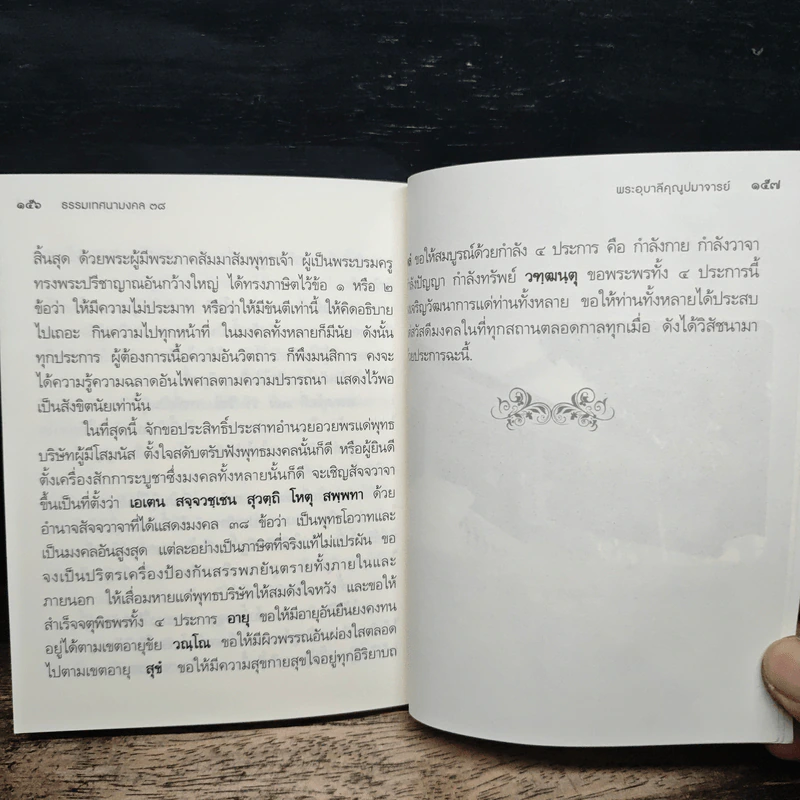 ๑๕๖ ธรรมเทศนามงคล ๓๘
สิ้นสุด ด้วยพระผู้มีพระภาคสัมมาสัมพุทธเจ้า ผู้เป็นพระบรมครู
ทรงพระปรีชาญาณอันกว้างใหญ่ ได้ทรงภาษิตไว้ข้อ ๑ หรือ ๒
ข้อว่า ให้มีความไม่ประมาท หรือว่าให้มีขันตีเท่านี้ ให้คิดอธิบาย
ไปเถอะ กินความไปทุกหน้าที่ ในมงคลทั้งหลายก็มีนัย ดังนั้น
ทุกประการ ผู้ต้องการเนื้อความอันวิตถาร ก็พึงมนสิการ คงจะ
ได้ความรู้ความฉลาดอันไพศาลตามความปรารถนา แสดงไว้พอ
เป็นสังขิตนัยเท่านั้น
ในที่สุดนี้ จักขอประสิทธิ์ประสาทอำนวยอวยพรแด่พุทธ
บริษัทผู้มีโสมนัส ตั้งใจสดับตรับฟังพุทธมงคลนั้นก็ดี หรือผู้ยินดี
ตั้งเครื่องสักการะบูชาซึ่งมงคลทั้งหลายนั้นก็ดี จะเชิญสัจจวาจา
ขึ้นเป็นที่ตั้งว่า เอเตน สจฺจวชฺเชน สุวตฺถิ โหตุ สพฺพทา ด้วย
อำนาจสัจจวาจาที่ได้แสดงมงคล ๓๘ ข้อว่า เป็นพุทธโอวาทและ
เป็นมงคลอันสูงสุด แต่ละอย่างเป็นภาษิตที่จริงแท้ไม่แปรผัน ขอ
จงเป็นปริตรเครื่องป้องกันสรรพภยันตรายทั้งภายในและ
ภายนอก ให้เสื่อมหายแด่พุทธบริษัทให้สมดังใจหวัง และขอให้
สำเร็จจตุพิธพรทั้ง ๔ ประการ อายุ ขอให้มีอายุอันยืนยงคงทน
อยู่ได้ตามเขตอายุขัย วณฺโณ ขอให้มีผิวพรรณอันผ่องใสตลอด
ไปตามเขตอายุ สุขํ ขอให้มีความสุขกายสุขใจอยู่ทุกอิริยาบถ
พระอุบาลีคุณูปมาจารย์ ๑๕๗
ขอให้สมบูรณ์ด้วยกำลัง ๔ ประการ คือ กำลังกาย กำลังวาจา
กำลังทรัพย์ วฑฺฒนฺตุ ขอพระพรทั้ง ๔ ประการนี้
เจริญวัฒนาการแด่ท่านทั้งหลาย ขอให้ท่านทั้งหลายได้ประสบ
สวัสดีมงคลในที่ทุกสถานตลอดกาลทุกเมื่อ ดังได้วิสัชนามา
ประการฉะนี้.